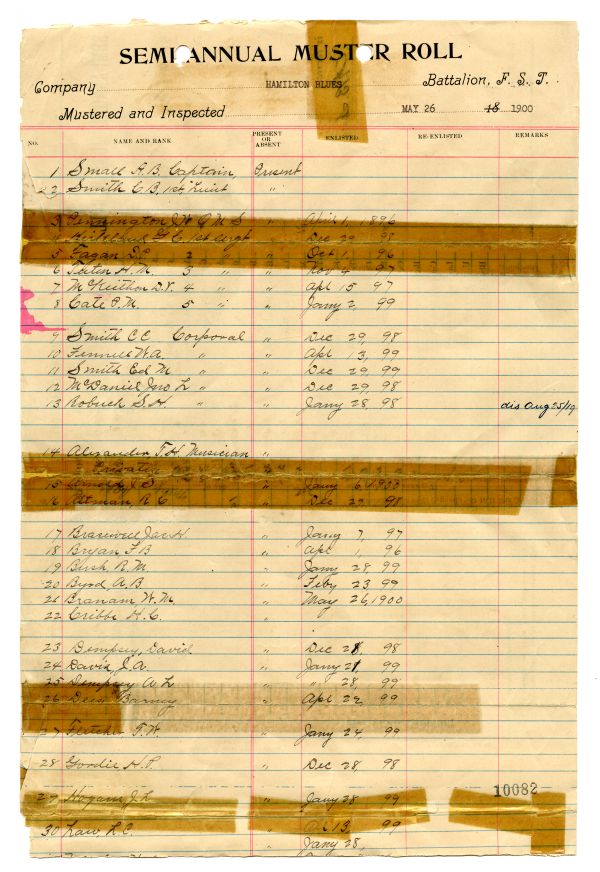 SEMI-ANNUAL MUSTER ROLL
Company HAMILTON BLUES Battalion, F. S. T.
Mustered and Inspected MAY 26 18 1900
NO. NAME AND RANK PRESENT OR ABSENT ENLISTED RE-ENLISTED REMARKS
1 Small A. B. Captain Present
2 Smith C B, 1st Lieut "
3 Pennington J W Q M S " April 1, 1896
4 1st Sergt " Dec 29 98
5 Fagan 2 " " Oct 1, 96
6 Tuten H. M. 3 " " Nov 4 97
7 McKeithon D. Y. 4 " " Apl 15 97
8 Cate P. M. 5 " " Jany 2, 99
9 Smith C C Corporal " Dec 29, 98
10 Fennell W. A. " " Apl 13, 99
11 Smith Ed M " " Dec 29, 99
12 McDaniel Jno L " " Dec 29, 98
13 Robuck S. H. " " Jany 28, 98 dis Aug 25/19
14 Alexander T. H. Musician "
Privates
15 Arnold J S " Jany 6, 1900
16 Altman R C " Dec 29 98
17 Brasewell Jas H " Jany 7, 97
18 Bryan F B " Apl 1, 96
19 Bush R. M. " Jany 28, 99
20 Byrd, A. B " Feby 23 99
21 Branam W. M. " May 26, 1900
22 Cribbs H. C. "
23 Dempsey, David " Dec 28, 98
24 Davis J. A. " Jany 28, 99
25 Dempsey W L " " 28, 99
26 Barney " Apl 22, 99
27 Fletcher T. W. " Jany 24, 99
28 Goodie H. P. " Dec 28, 98
10082
29 Hogans J. L " Jany 28 99
30 Law, L. C. " 13 99
Jany 28,